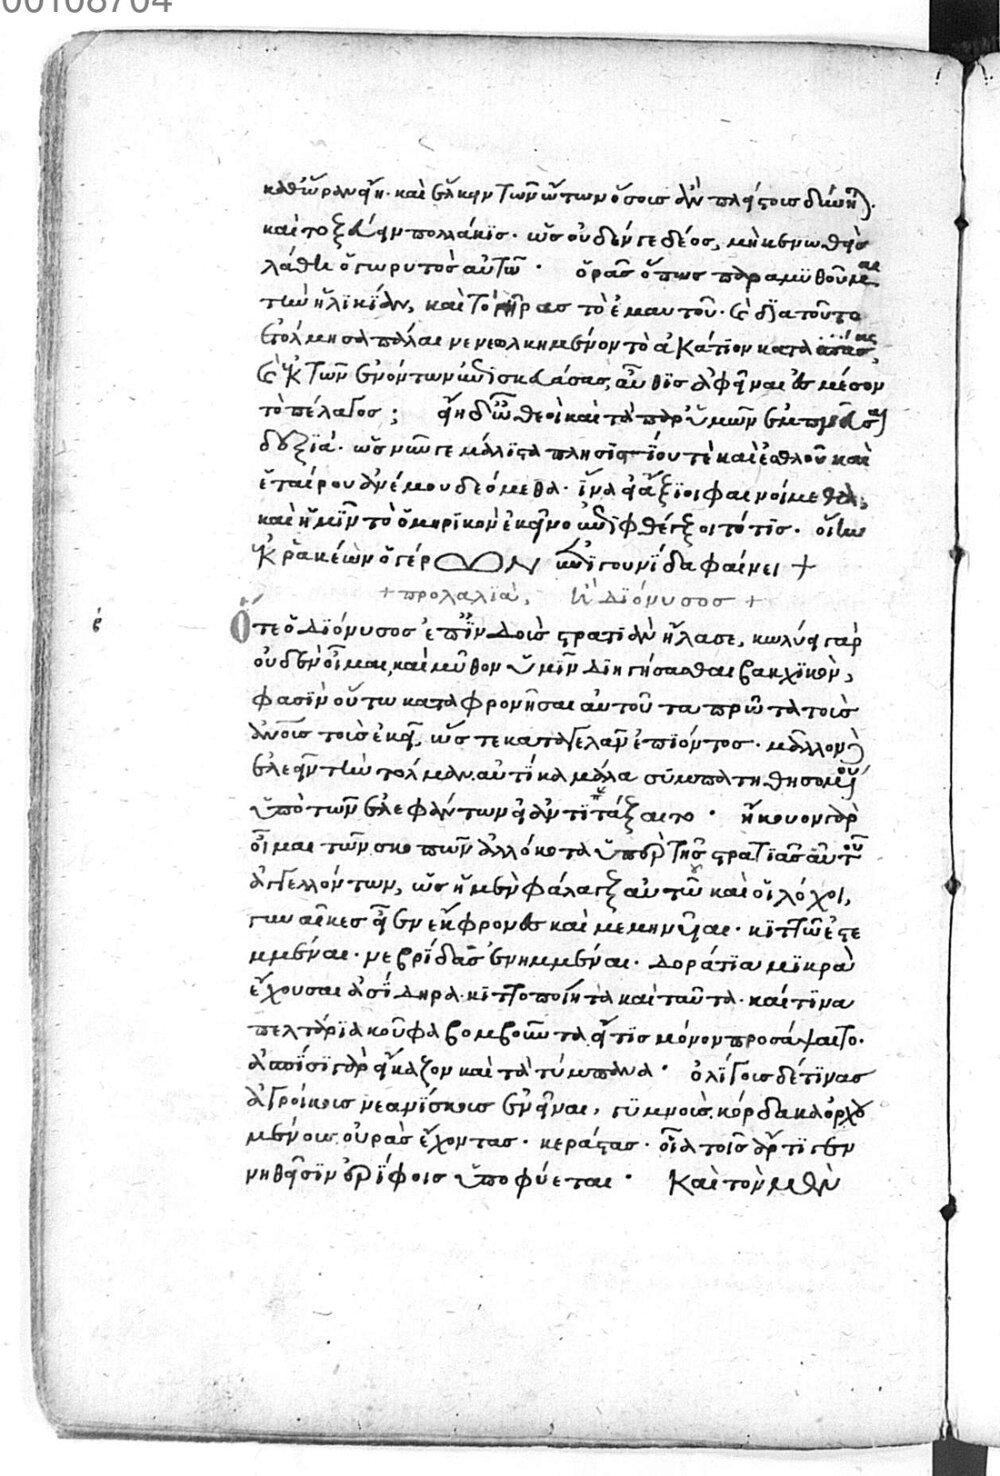 00108704
καθ' ὥραν εἴη. καὶ ἕλκειν τῶν ὤτων ὅσοις ἂν πλείστοις δύνηται.
καὶ τοξεύειν πολλάκις. ὡς οὐδέν γε δέος, μὴ κενωθεὶς
λάθῃ ὁ γωρυτὸς αὐτῶν. ὁρᾶς ὅπως παραμυθοῦμαι
τὴν ἡλικίαν, καὶ τὸ γῆρας τὸ ἐμαυτοῦ. καὶ διὰ τοῦτο
ἐτόλμησα πάλαι νενεωλκημένον τὸ ἀκάτιον κατασπάσας,
καὶ ἐκ τῶν ἐνόντων ἐπισκευάσας, αὖθις ἀφεῖναι ἐς μέσον
τὸ πέλαγος; εἴη δ' ὦ θεοὶ καὶ τὰ παρ' ὑμῶν ἐμπνεῦσαι
δεξιά. ὡς νῦν γε μάλιστα πλησιστίου τὲ καὶ ἐσθλοῦ καὶ
ἑταίρου ἀνέμου δεόμεθα. ἵνα εἰ ἄξιοι φαινοίμεθα,
καὶ ἡμῖν τὸ ὁμηρικὸν ἐκεῖνο ἐπιφθέγξαιτό τις. οἵην
ἐκ ῥακέων ὁ γέρων ἐπιγουνίδα φαίνει +
+ προλαλιὰ, ἢ διόνυσος +
β
Ὅτε ὁ διόνυσος ἐπ' ἰνδοὺς στρατιὰν ἤλασε, κωλύει γὰρ
οὐδὲν οἶμαι, καὶ μῦθον ὑμῖν διηγήσασθαι βακχικὸν,
φασὶν οὕτω καταφρονῆσαι αὐτοῦ τα πρῶτα τοὺς
ἀνους τοὺς ἐκεῖ, ὥστε καταγελᾶν ἐπιόντος. μᾶλλον δὲ
ἐλεεῖν τὴν τόλμαν. αὐτίκα μάλα συμπατηθησομένου
ὑπὸ τῶν ἐλεφάντων εἰ ἀντιτάξαιτο. ἤκουον γὰρ
οἶμαι τῶν σκοπῶν ἀλλόκοτα ὑπὲρ τῆς στρατιᾶς αὐτοῦ
ἀγγελλόντων, ὡς ἡ μὲν φάλαγξ αὐτῶ καὶ οἱ λόχοι,
γυναῖκες εἶεν ἔκφρονες καὶ μεμηνυῖαι. κιττῶ ἐστε
μμέναι. νεβρίδας ἐνημμέναι. δοράτια μικρὰ
ἔχουσαι ἀσίδηρα. κιττοποίητα καὶ ταῦτα. καί τινα
πελτάρια κοῦφα βομβοῦντα, εἴ τις μόνον προσάψαιτο.
ἀσπίσι γὰρ εἴκαζον καὶ τὰ τύμπανα. ὀλίγους δέ τινας
ἀγροίκους νεανίσκους ἐνεῖναι, γυμνοὺς, κόρδακα ὀρχου
μένους. οὐρὰς ἔχοντας. κεράστας. οἷα τοῖς ἄρτι γεν
νηθεῖσιν ἐρίφοις ὑποφύεται. Καὶ τὸν μὲν